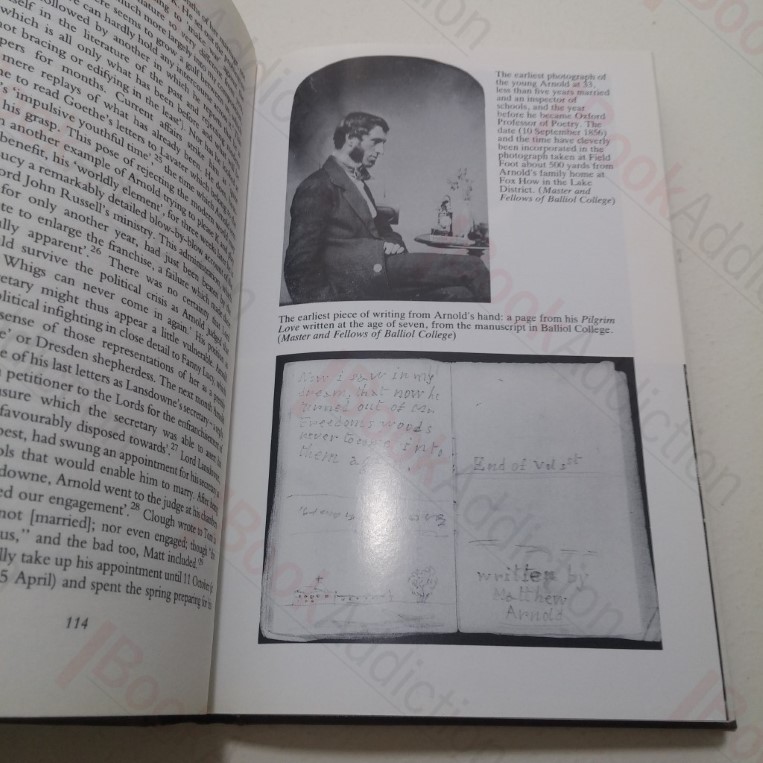 of the
nature to
there seems to
much more
we can hardly hold any
followed by another in
self in the literature of the past and
which is all only what has been before
not bracing or edifying in the least'. No
pers for months. Current affairs strike
mere replays of what has already been
me to read Goethe's letters to Lavater which
's 'impulsive youthful time',25 the time before
his grasp. This pose of rejecting the modern
n another example of Arnold trying to please
benefit, his 'worldly element', for three weeks later
ucy a remarkably detailed blow-by-blow account of
ord John Russell's ministry. This administration
for only another year, had just been beaten
te to enlarge the franchise, a failure which made
lly apparent'.26 There was no certainty that
ld survive the political crisis as Arnold judged
Whigs can never come in again.' His position
retary might thus appear a little vulnerable. Arnold
olitical infighting in close detail to Fanny Lucy
sense of those representations of her as a
e' or Dresden shepherdess. The next month
e of his last letters as Lansdowne's secretary
petitioner to the Lords for the enfranchisement of
asure which the secretary was able to
favourably disposed towards'.27 Lord Lansdowne,
pest, had swung an appointment for his secretary
ols that would enable him to marry. After
downe, Arnold went to the judge at his chambers
ed our engagement'.28 Clough wrote to Tom
not [married]; nor even engaged; though
us," and the bad too, Matt included.'
lly take up his appointment until 11 October
5 April) and spent the spring preparing for his
114
The earliest photograph of
the young Arnold at 33,
less than five years married
and an inspector of
schools, and the year
before he became Oxford
Professor of Poetry. The
date (10 September 1856)
and the time have cleverly
been incorporated in the
photograph taken at Field
Foot about 500 yards from
Arnold's family home at
Fox How in the Lake
District. (Master and
Fellows of Balliol College)
The earliest piece of writing from Arnold's hand: a page from his Pilgrim
Love written at the age of seven, from the manuscript in Balliol College.
(Master and Fellows of Balliol College)
Now i saw in my
dream, that now he
turned out of
Freedoms woods
never to come into
them
End of Vol 1st
written by
Matthew
Arnold
Book Addiction